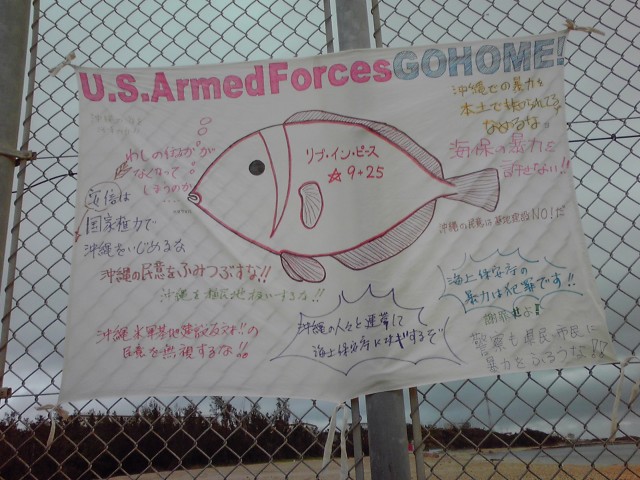 U.S.Armed Forces GO HOME!
沖縄での暴力を
本土で
なめるな。
海保の暴力を
許せない!!
沖縄の民意は基地建設NO!だ
リブ・イン・ピース
☆9+25
わしの行き場が
なくなって
しまうのか
安倍は
国家権力で
沖縄をいじめるな
沖縄の民意をふみつぶすな!!
沖縄を植民地扱いするな!!
沖縄米軍基地建設反対!!の
民意を無視するな!!
沖縄の人々と連帯して
海上保安庁の
暴力は犯罪です!!
警察も県民・市民に
暴力をふるうな!!